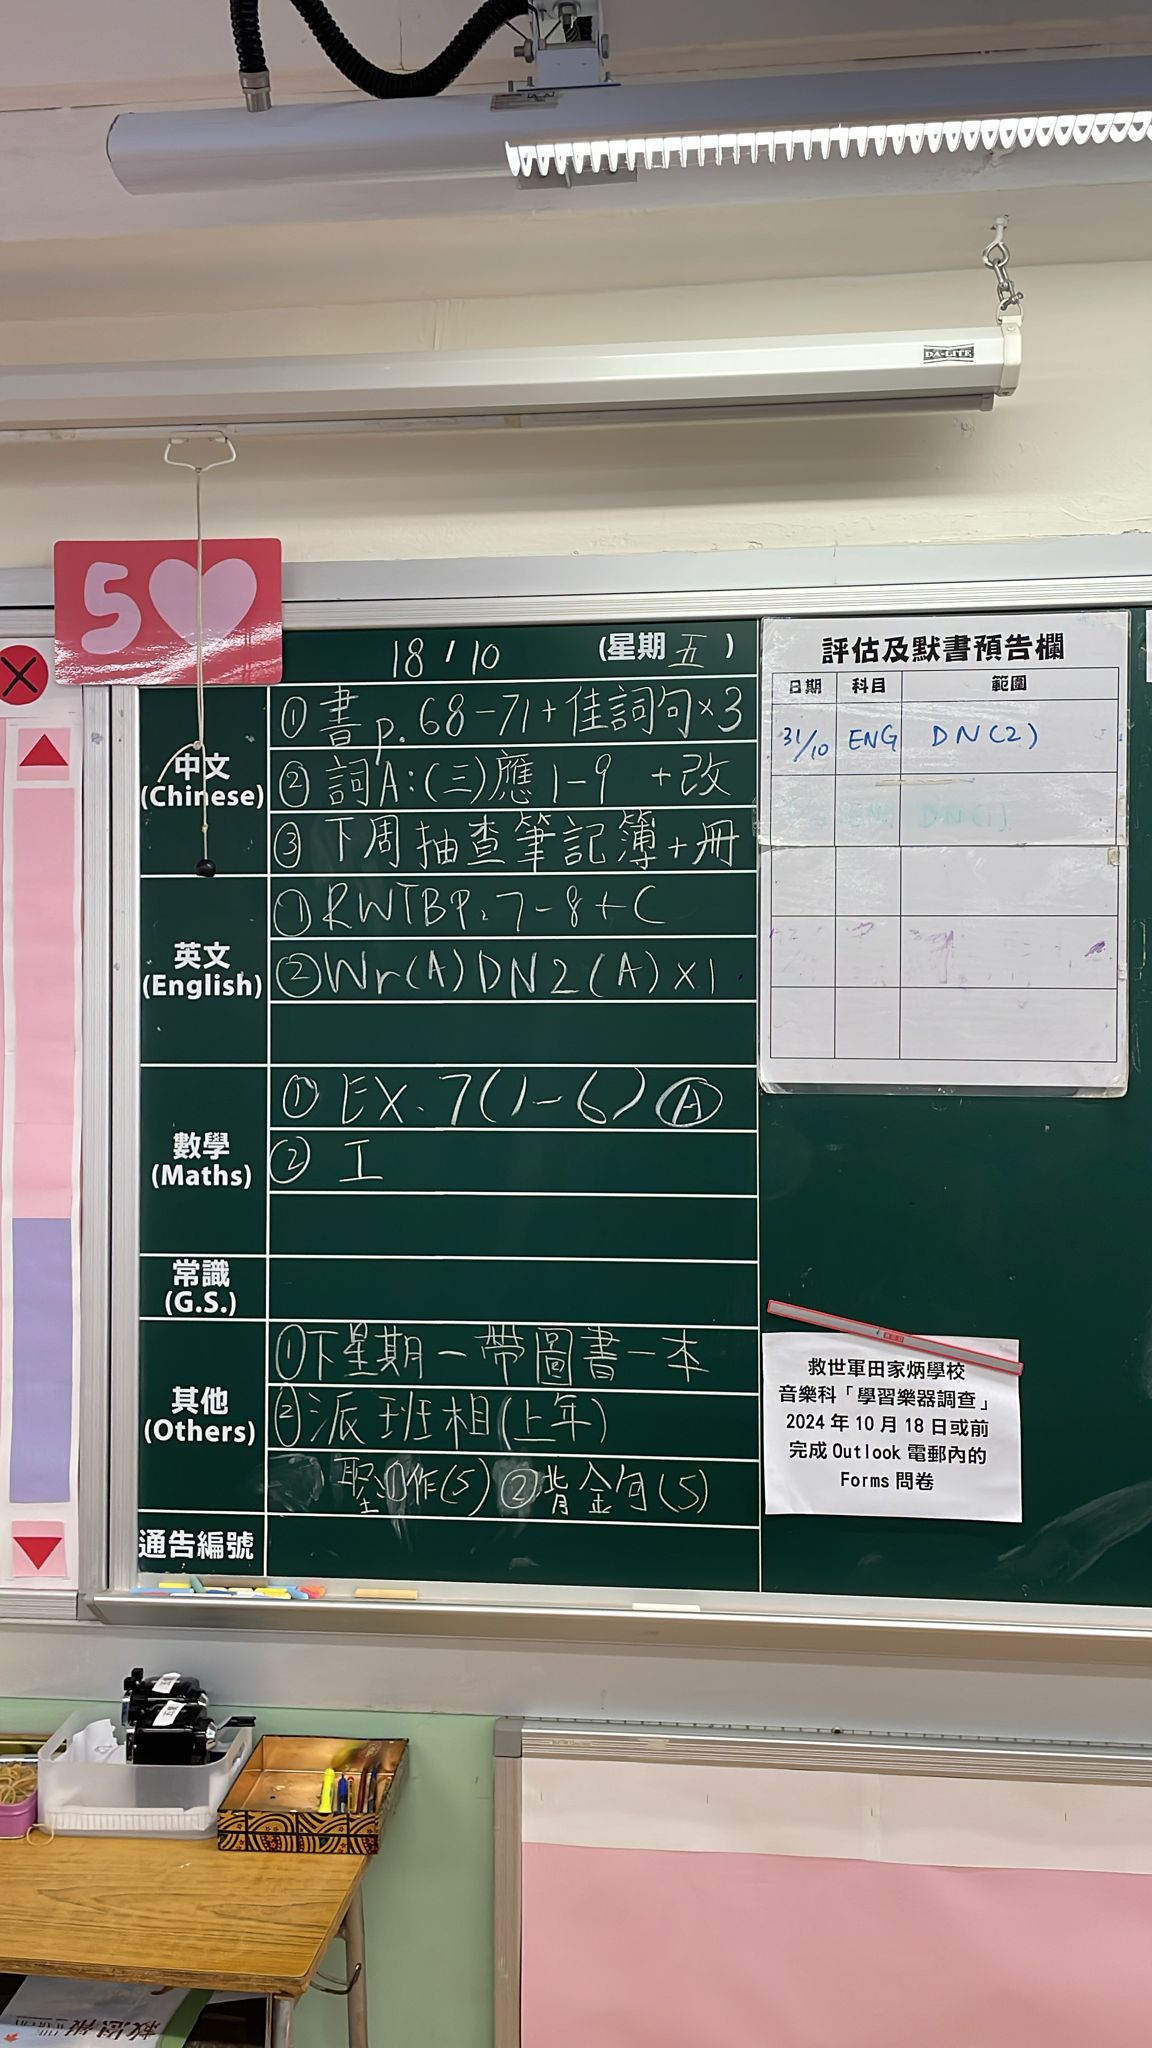 DA-LITE
5
18/10 (星期五)
中文
(Chinese)
①書p.68-71+佳詞句×3
②詞A:(三)應1-9 +改
③下周抽查筆記簿+冊
英文
(English)
①RWTBP.7-8+C
②Wr(A)DN2(A)×1
數學
(Maths)
①EX.7(1-6)Ⓐ
②工
常識
(G.S.)
其他
(Others)
①下星期一帶圖書一本
②派班相(上年)
聖①作(5)②背金句(5)
通告編號
評估及默書預告欄
日期 科目 範圍
31/10 ENG DN(2)
ENG DN(1)
救世軍田家炳學校
音樂科「學習樂器調查」
2024年10月18日或前
完成Outlook電郵內的
Forms問卷